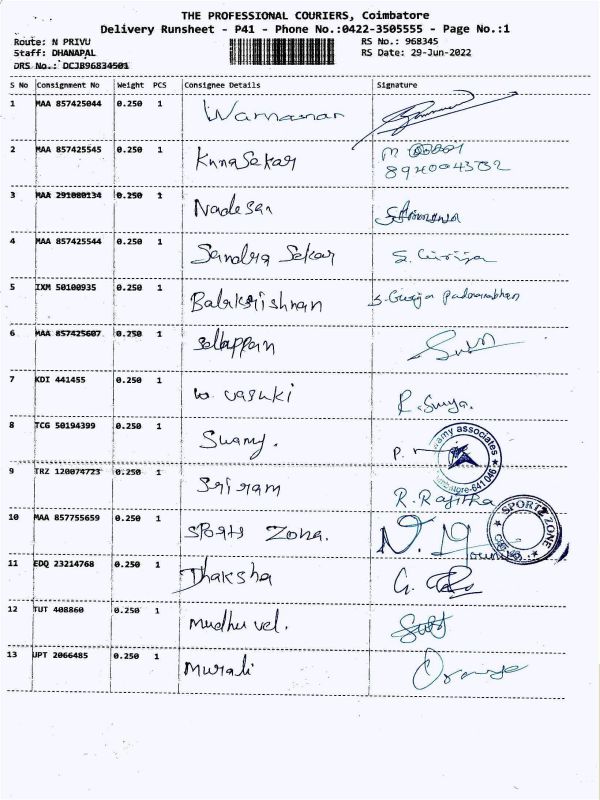 THE PROFESSIONAL COURIERS, Coimbatore
Delivery Runsheet - P41 - Phone No.:0422-3505555 - Page No.:1
Route: N PRIVU RS No.: 968345
Staff: DHANAPAL RS Date: 29-Jun-2022
DRS No.: DCJB96834501
S No Consignment No Weight PCS Consignee Details Signature
1 MAA 857425044 0.250 1 Wamanan
2 MAA 857425545 0.250 1 KnnaSekar M
8940043502
3 MAA 291080134 0.250 1 Nadesan
4 MAA 857425544 0.250 1 Sandra Sekar S. Girija
5 IXM 50100935 0.250 1 Balakrishnan S. Girija Padmanabhan
6 MAA 857425607 0.250 1 sellappan
7 KDI 441455 0.250 1 w. vasuki R. Surya.
8 TCG 50194399 0.250 1 Swamy. P.
amy associates
641 046
9 TRZ 120074723 0.250 1 Sriram R. Rajitha
10 MAA 857755659 0.250 1 SPORTS Zone. N.
SPORTZ ZONE
11 EDQ 23214768 0.250 1 Dhaksha G.
12 TUT 408860 0.250 1 mudhu vel.
13 UPT 2066485 0.250 1 Murali